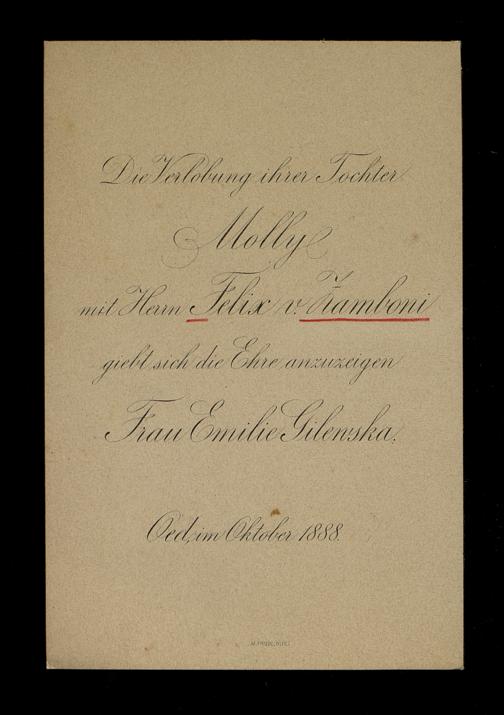 Die Verlobung ihrer Tochter
Molly
mit Herrn Felix v. Zamboni
giebt sich die Ehre anzuzeigen
Frau Emilie Gilewska.
Oed, im Oktober 1888.